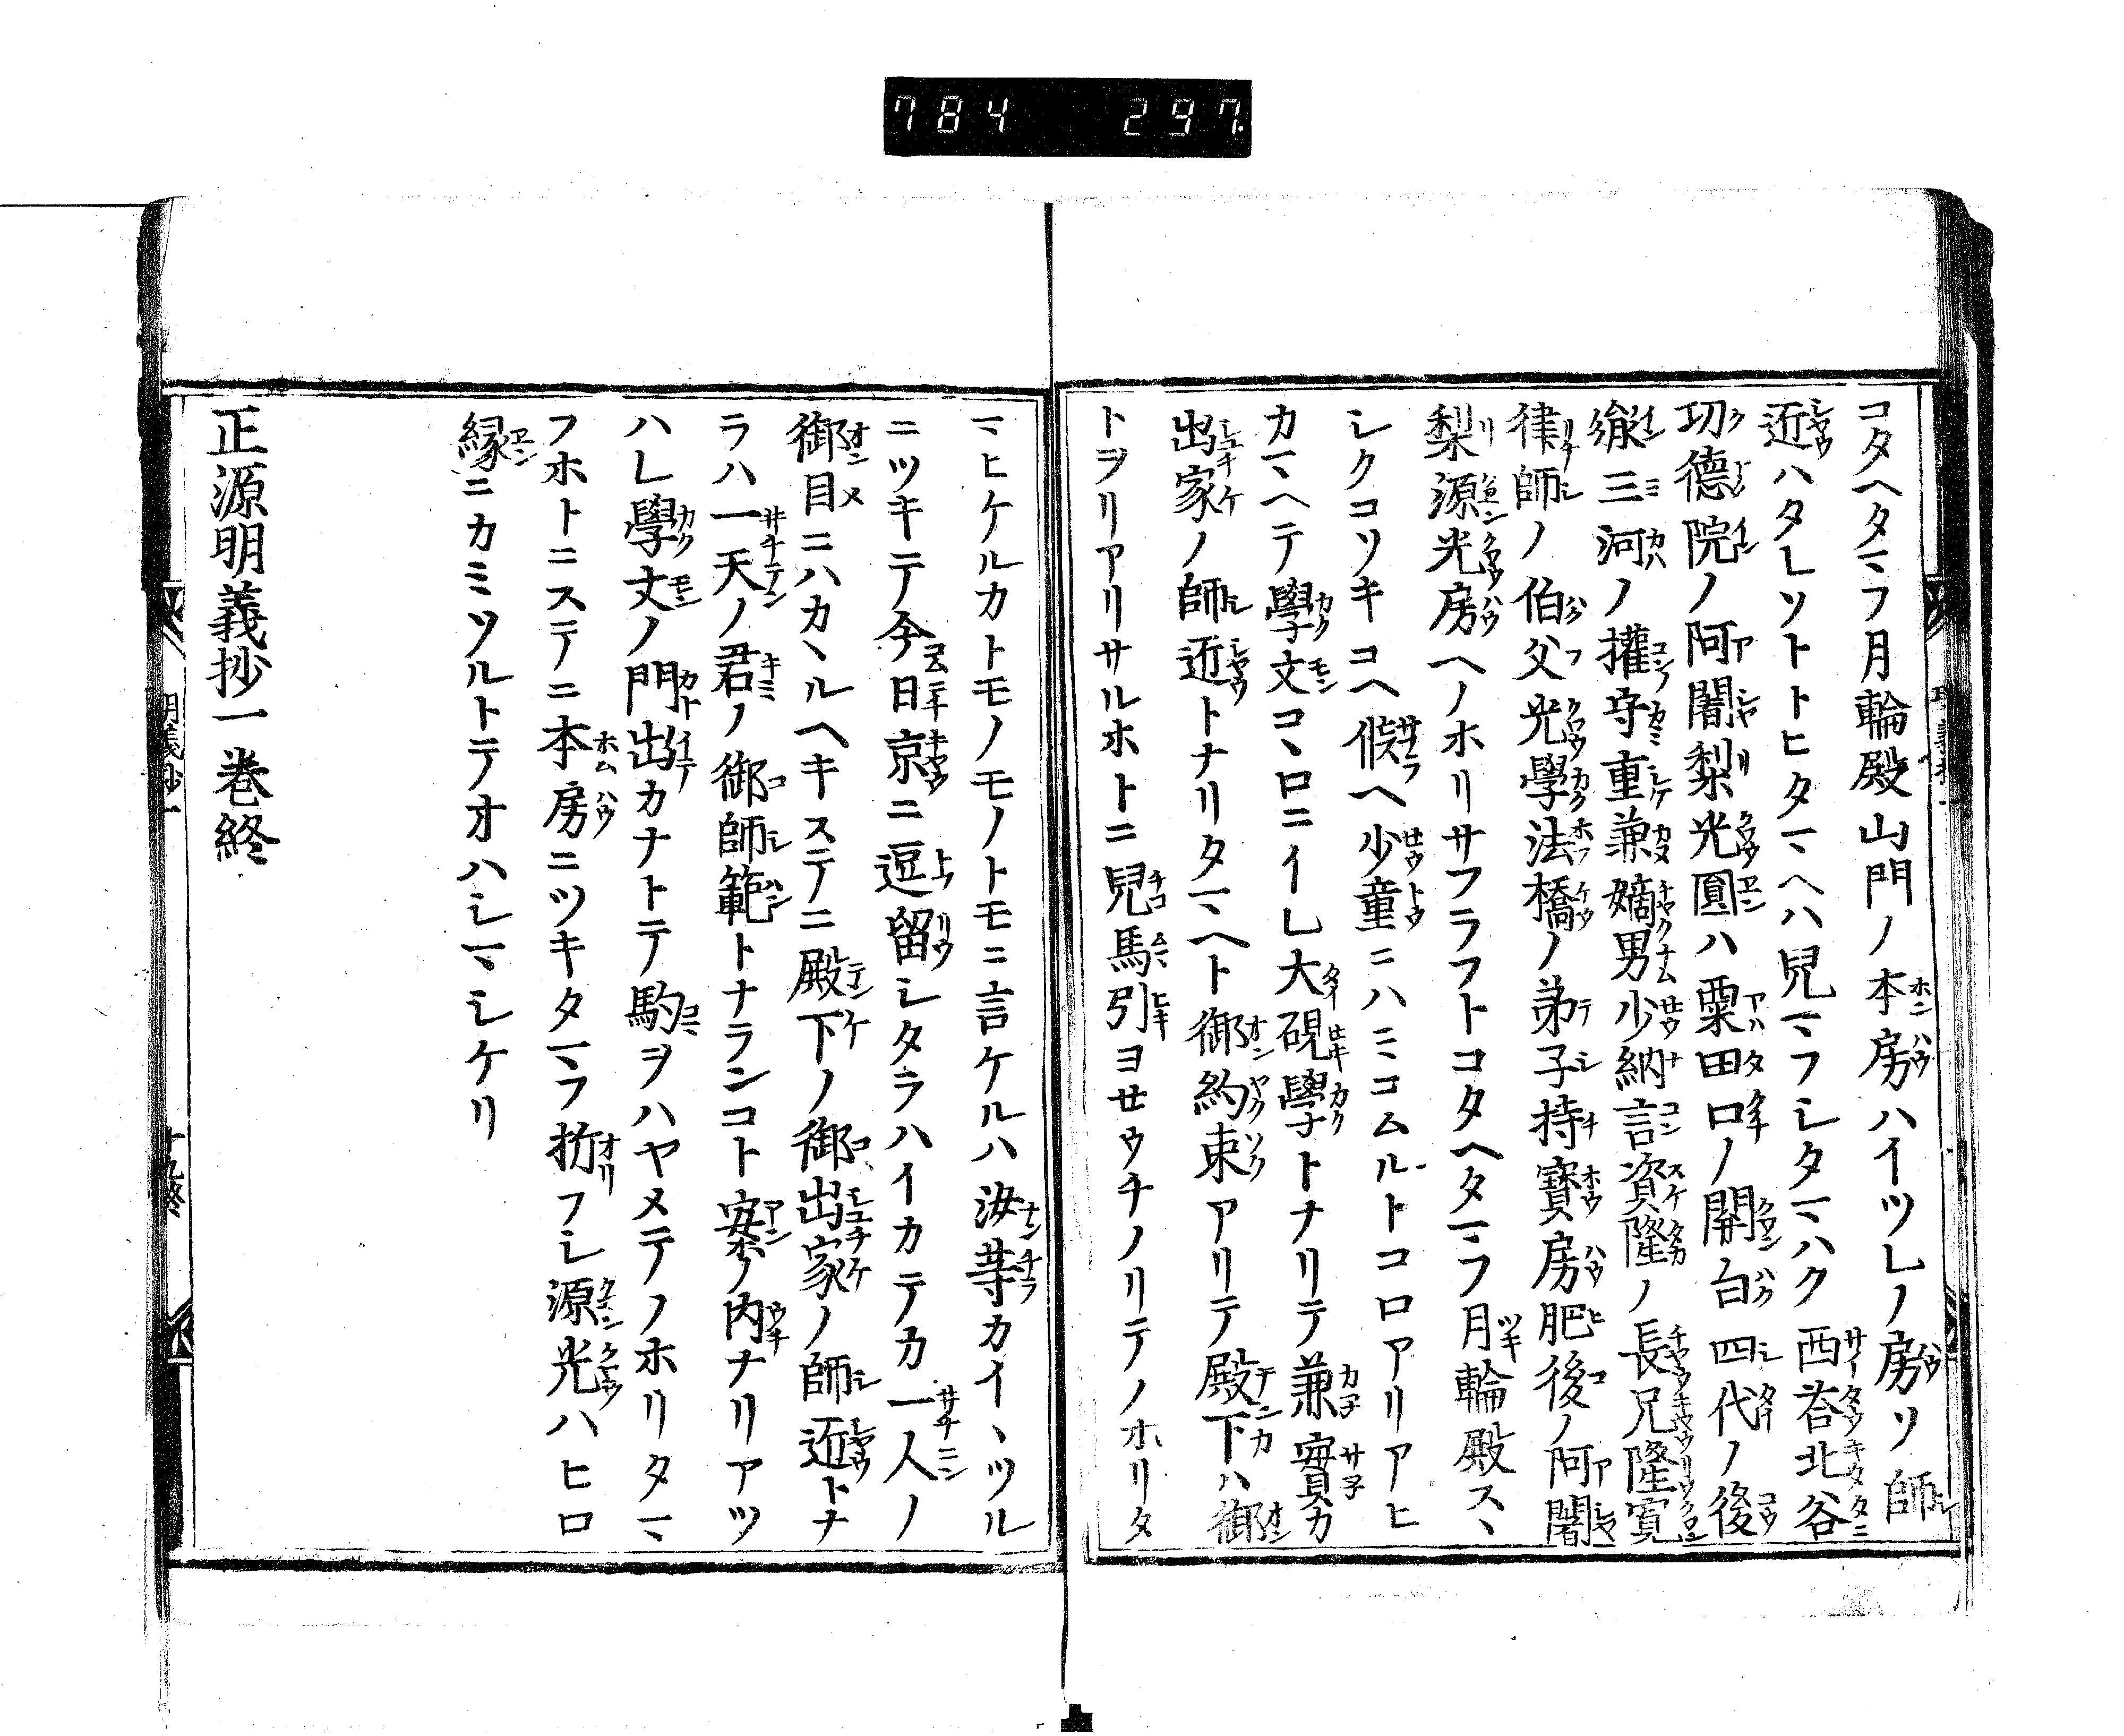 784 297
コタヘタマフ月輪殿山門ノ本房ハイツレノ房ソ師
近ハタレソトトヒタマヘハ兒マフシタマハク西荅北谷
功德院ノ阿闍梨光圓ハ粟田口ノ開白四代ノ後
三河ノ權守重兼嫡男少納言資隆ノ長兄隆寛
律師ノ伯父光學法橋ノ弟子持寳房肥後ノ阿闍
梨源光房ヘノホリサフラフトコタヘタマフ月輪殿スヽ
シクコソキコヘ候ヘ少童ニハミコムルトコロアリアヒ
カマヘテ學文コヽロニイレ大碩學トナリテ兼實カ
出家ノ師近トナリタマヘト御約束アリテ殿下ハ御
トヲリアリサルホトニ兒馬引ヨセウチノリテノホリタ
マヒケルカトモノモノトモニ言ケルハ汝等カイヽツル
ニツキテ今日京ニ逗留シタラハイカテカ一人ノ
御目ニハカヽルヘキステニ殿下ノ御出家ノ師近トナ
ラハ一天ノ君ノ御師範トナランコト案ノ内ナリアツ
ハレ學文ノ門出カナトテ駒ヲハヤメテノホリタマ
フホトニステニ本房ニツキタマフ折フシ源光ハヒロ
縁ニカミソルトテオハシマシケリ
正源明義抄一巻終
明義抄一
十九終